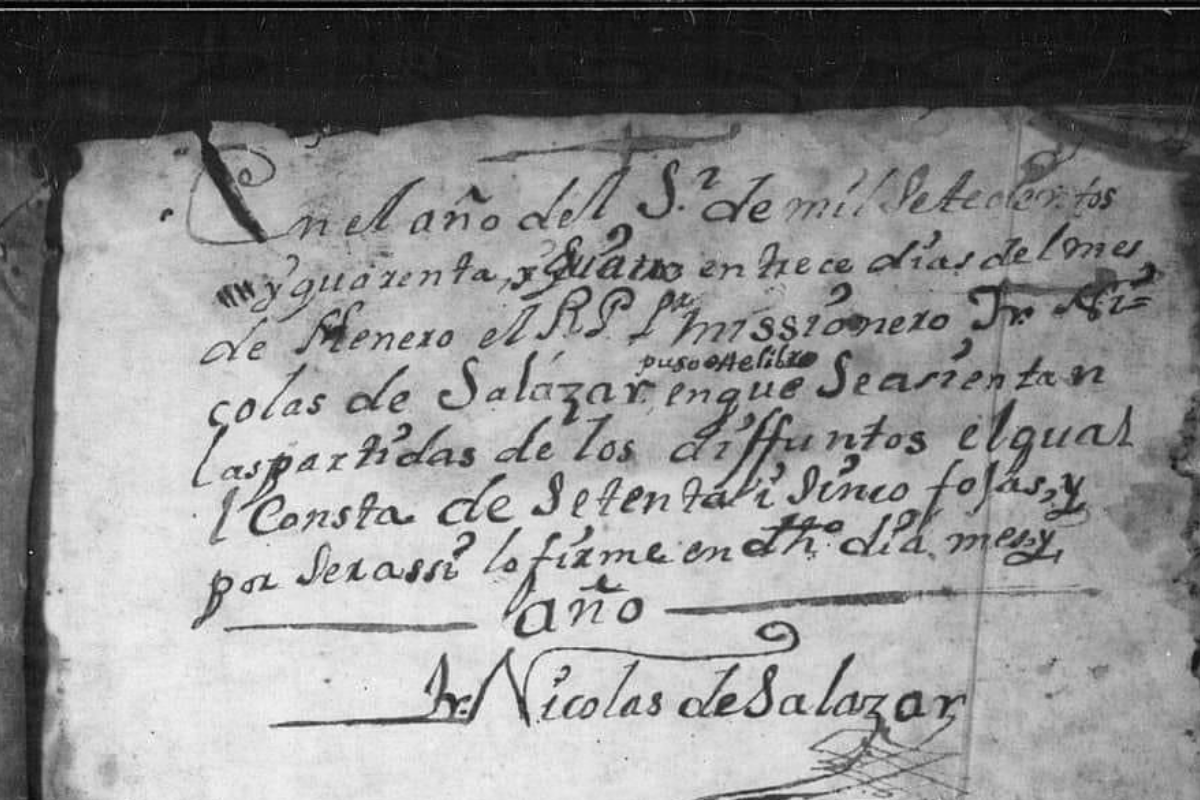 En el año del S.r de mil Setecientos
y quarenta, y Quatro en trece dias del mes
de Henero el R P P.r missionero Fr. Ni=
colas de Salázar, puso este libro en que Seasientan
las partidas de los diffuntos elqual
Consta de Setenta i Sinco fojas, y
por Serassi lo firme en dho dia, mes, y
año
Fr. Nicolas de Salazar